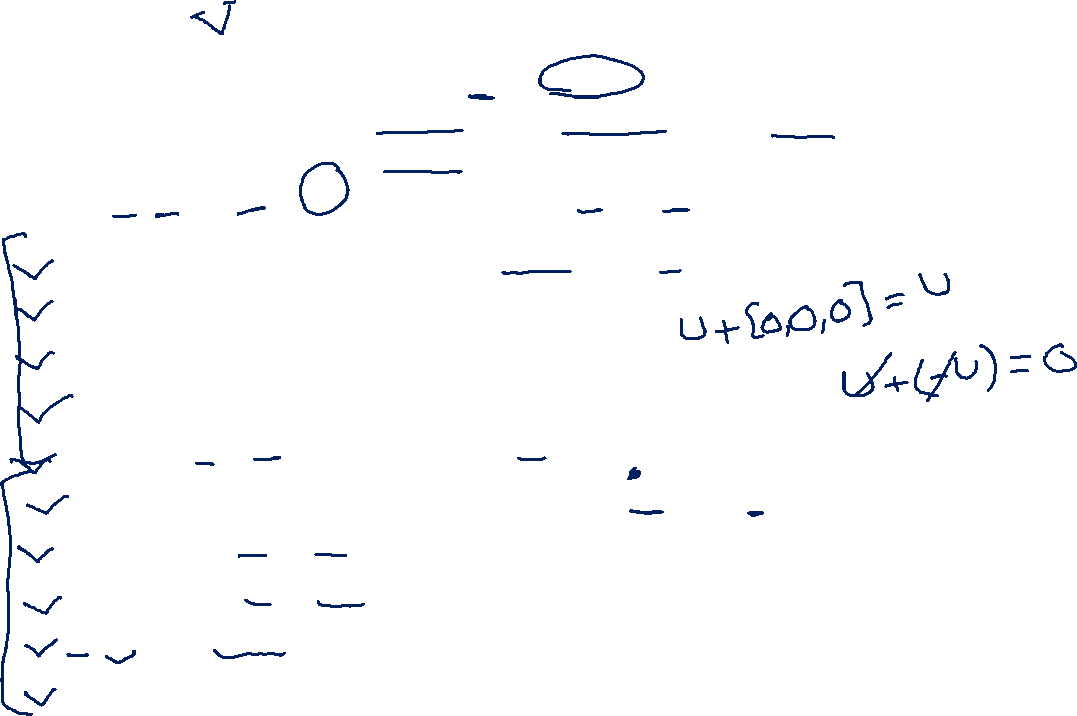 U+[0,0,0]=U
U+(-U)=0